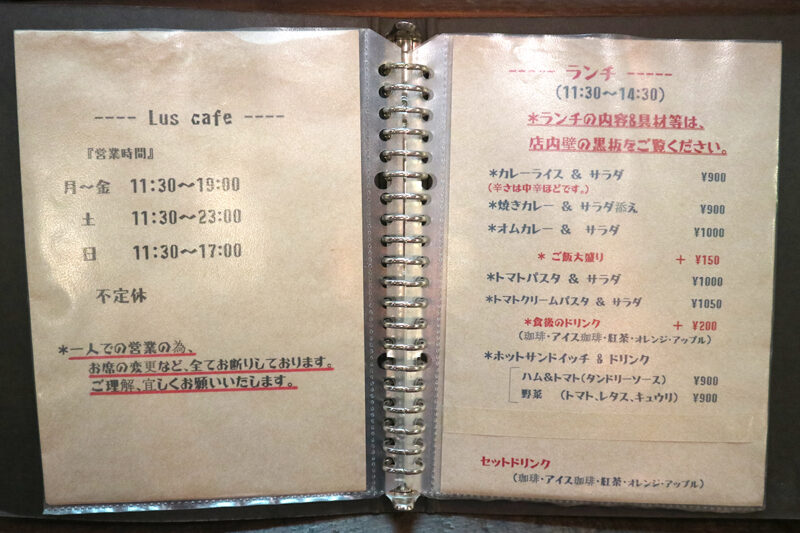 ---- Lus cafe ----
『営業時間』
月〜金 11:30〜19:00
土 11:30〜23:00
日 11:30〜17:00
不定休
*一人での営業の為、
お席の変更など、全てお断りしております。
ご理解、宜しくお願いいたします。
----- ランチ -----
(11:30〜14:30)
*ランチの内容&具材等は、
店内壁の黒板をご覧ください。
*カレーライス & サラダ ¥900
(辛さは中辛ほどです。)
*焼きカレー & サラダ添え ¥900
*オムカレー & サラダ ¥1000
* ご飯大盛り + ¥150
*トマトパスタ & サラダ ¥1000
*トマトクリームパスタ & サラダ ¥1050
*食後のドリンク + ¥200
(珈琲・アイス珈琲・紅茶・オレンジ・アップル)
*ホットサンドイッチ & ドリンク
ハム&トマト(タンドリーソース) ¥900
野菜 (トマト、レタス、キュウリ) ¥900
セットドリンク
(珈琲・アイス珈琲・紅茶・オレンジ・アップル)